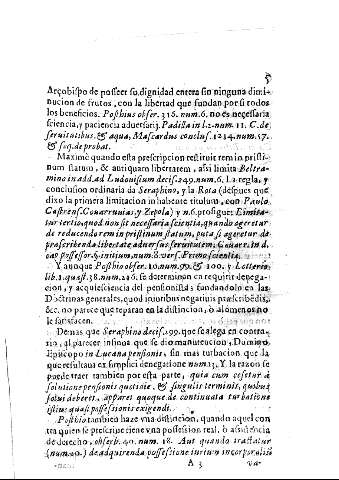 5
Arçobispo de posseer su dignidad entera sin ninguna dimi-
nucion de frutos, con la libertad que fundan por si todos
los beneficios. Posthius obser. 316. num. 6. no es necessaria
sciencia, y paciencia aduersarij. Padilla in l. 2. num. 11. C. de
seruitutibus. & aqua, Mascardus conclus. 1234. num. 57.
& seq. de probat.
Maximè quando esta prescripcion restituit rem in pristi-
num statum, & antiquam libertatem, assi limita Beltra-
mino in add. ad Ludouisium decis. 249. num. 6. la regla, y
conclusion ordinaria da Seraphino, y la Rota (despues que
dixo la primera limitacion in habente titulum, con Paulo
Castrens. Couarruuias, y Zepola) y n. 6. prosigue: Limita-
tur tertiò, quod non sit necessaria scientia, quando ageretur
de reducendo rem in pristinum statum, puta si ageretur de
præscribenda libertate aduersus seruitutem, Couar. in d.
cap possessor. §. initium, num. 8. vers. Primo scientia.
Y aunque Posthio obser. 10. num. 99. & 100. y Lotterio
lib. 1. quæst. 38. num. 216. se determinan en requirir denega-
cion, y acquiescencia del pensionista fundandolo en las
Doctrinas generales, quod in iuribus negatiuis præscribēdis,
&c. no parece que reparan en la distincion, ò alomenos no
le satisfacen.
Demas que Seraphino decis. 199. que se alega en contra-
rio, al parecer insinua que se dio manutencion, Dumino
Episcopo in Lucana pensionis, sin mas turbacion que la
que resultaua ex simplici denegatione num. 3. Y la razon se
puede traer tambien por esta parte, quia cum cesetur à
solutione pensonis quotidie, & singulis terminis, quibus
solui deberet, apparet quoque de continuata turbatione
istius quasi possessionis exigendi.
Posthio tambien haze vna distincion, quando aquel con-
tra quien se prescriue tiene vna possession real, ò assistēcia
de derecho, obserb. 40. num. 18. Aut quando tractatur
(num. 20.) de adquirenda possessione iurium incorporaliũ
A 3 va-